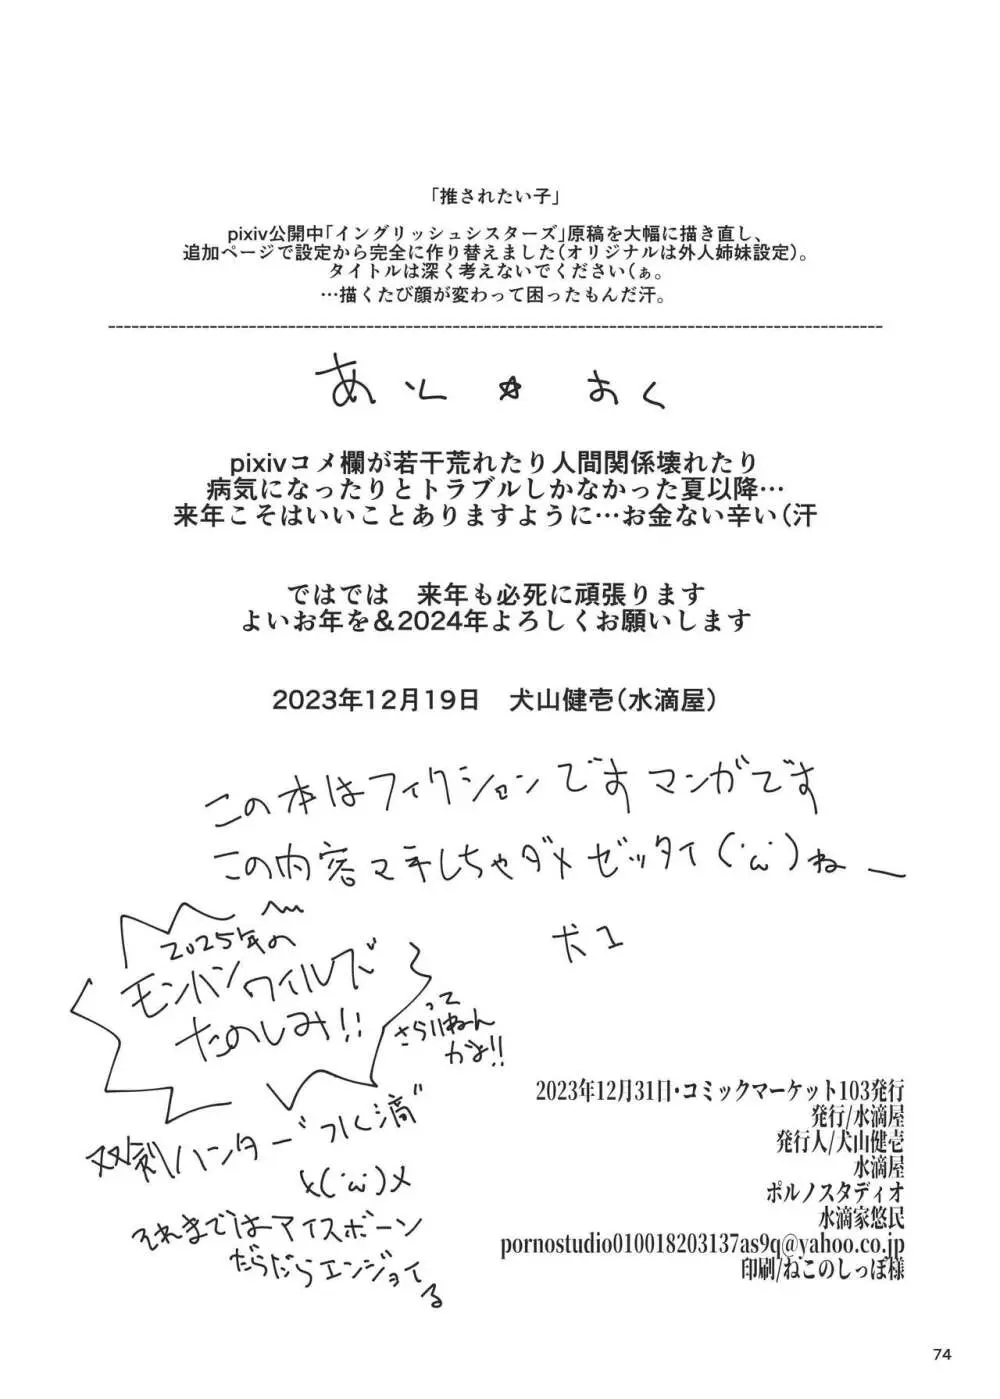 「推されたい子」
pixiv公開中「イングリッシュシスターズ」原稿を大幅に描き直し、
追加ページで設定から完全に作り替えました(オリジナルは外人姉妹設定)。
タイトルは深く考えないでください(ぁ。
…描くたび顔が変わって困ったもんだ汗。
あとがく
pixivコメ欄が若干荒れたり人間関係壊れたり
病気になったりとトラブルしかなかった夏以降…
来年こそはいいことありますように…お金ない辛い(汗
ではでは　来年も必死に頑張ります
よいお年を&2024年よろしくお願いします
2023年12月19日　犬山健壱(水滴屋)
この本はフィクションですマンガです
この内容マネしちゃダメゼッタイ(´ω`)ねー
犬1
2025年の
モンハンワイルズ
たのしみ!!
って
さらいねん
かよ!!
双剣ハンター"つくし滴"
メ(´ω`)メ
それまではアイスボーン
だらだらエンジョイ
る
2023年12月31日・コミックマーケット103発行
発行/水滴屋
発行人/犬山健壱
水滴屋
ポルノスタディオ
水滴家悠民
pornostudio010018203137as9q@yahoo.co.jp
印刷/ねこのしっぽ様
74